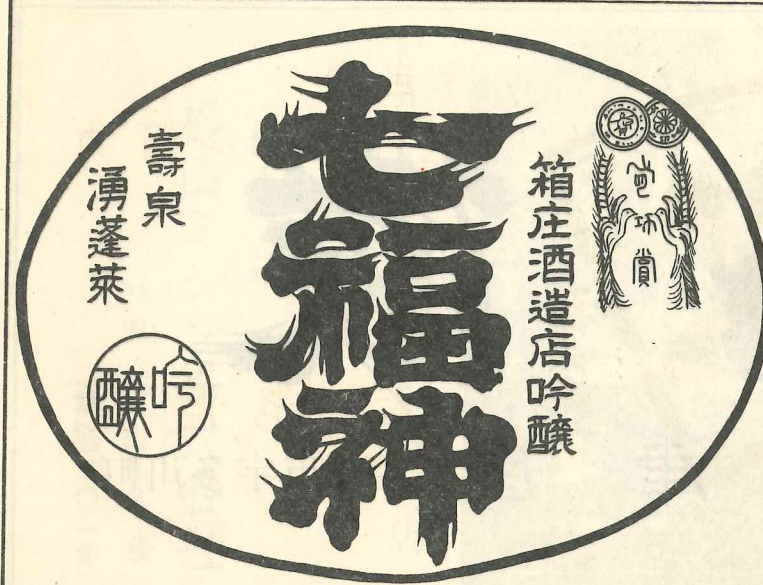 有功賞
箱庄酒造店吟醸
七福神
壽泉
湧蓬莱
吟醸